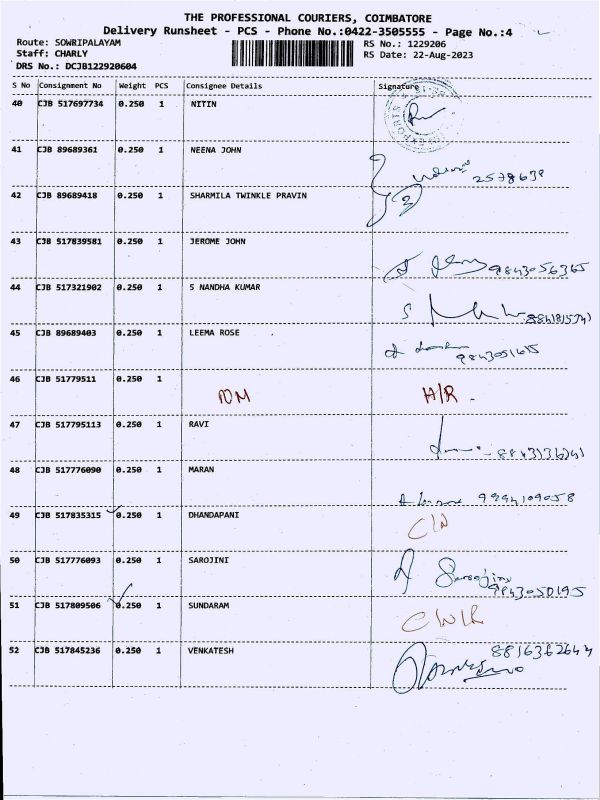 THE PROFESSIONAL COURIERS, COIMBATORE
Delivery Runsheet - PCS - Phone No.:0422-3505555 - Page No.:4
Route: SOWRIPALAYAM RS No.: 1229206
Staff: CHARLY RS Date: 22-Aug-2023
DRS No.: DCJB122920604
S No Consignment No Weight PCS Consignee Details Signature
40 CJB 517697734 0.250 1 NITIN
41 CJB 89689361 0.250 1 NEENA JOHN
42 CJB 89689418 0.250 1 SHARMILA TWINKLE PRAVIN
43 CJB 517839581 0.250 1 JEROME JOHN
9843056365
44 CJB 517321902 0.250 1 S NANDHA KUMAR
45 CJB 89689403 0.250 1 LEEMA ROSE
46 CJB 51779511 0.250 1
H/R
47 CJB 517795113 0.250 1 RAVI
48 CJB 517776090 0.250 1 MARAN
9994109058
49 CJB 517835315 0.250 1 DHANDAPANI
50 CJB 517776093 0.250 1 SAROJINI
Sarojini
9843050195
51 CJB 517809506 0.250 1 SUNDARAM
52 CJB 517845236 0.250 1 VENKATESH